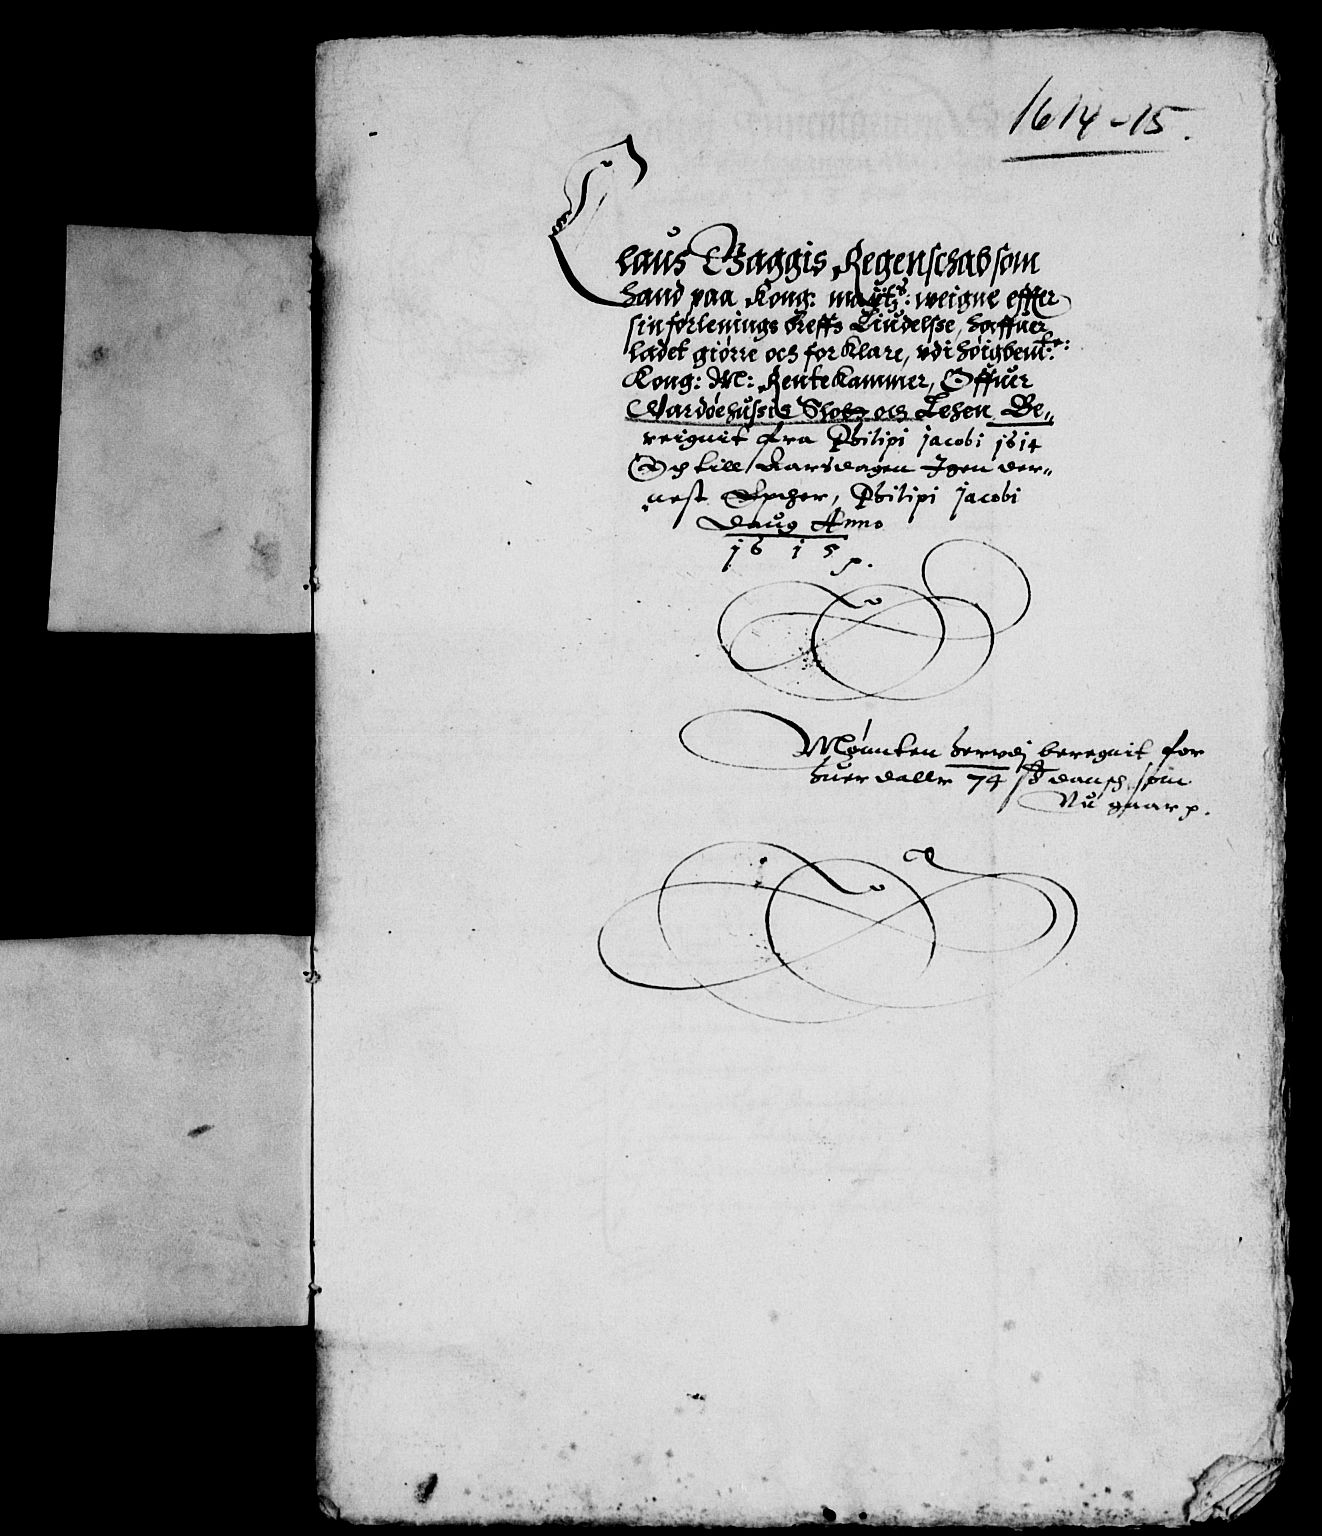 1614-15.
Claus Gaggis Regenschab som
hand paa Kong: maytz: weigne effter
sin forlenings breffs Liudelsse, haffuer
ladet giørre och forklare, vdi høigbemte:
Kong: M: Rentekammer, Offuer
Wardøehussis Slott och Lehen Be,,
reignit fra Philipi Jacobi 1614
Och till Aarsdagen Igen der,,
nest Epther, Philipi Jacobi
Daug Anno
1615
Mønnten herudj beregnit for
huer dallr 74 ß dansch, som
Nu gaar p.